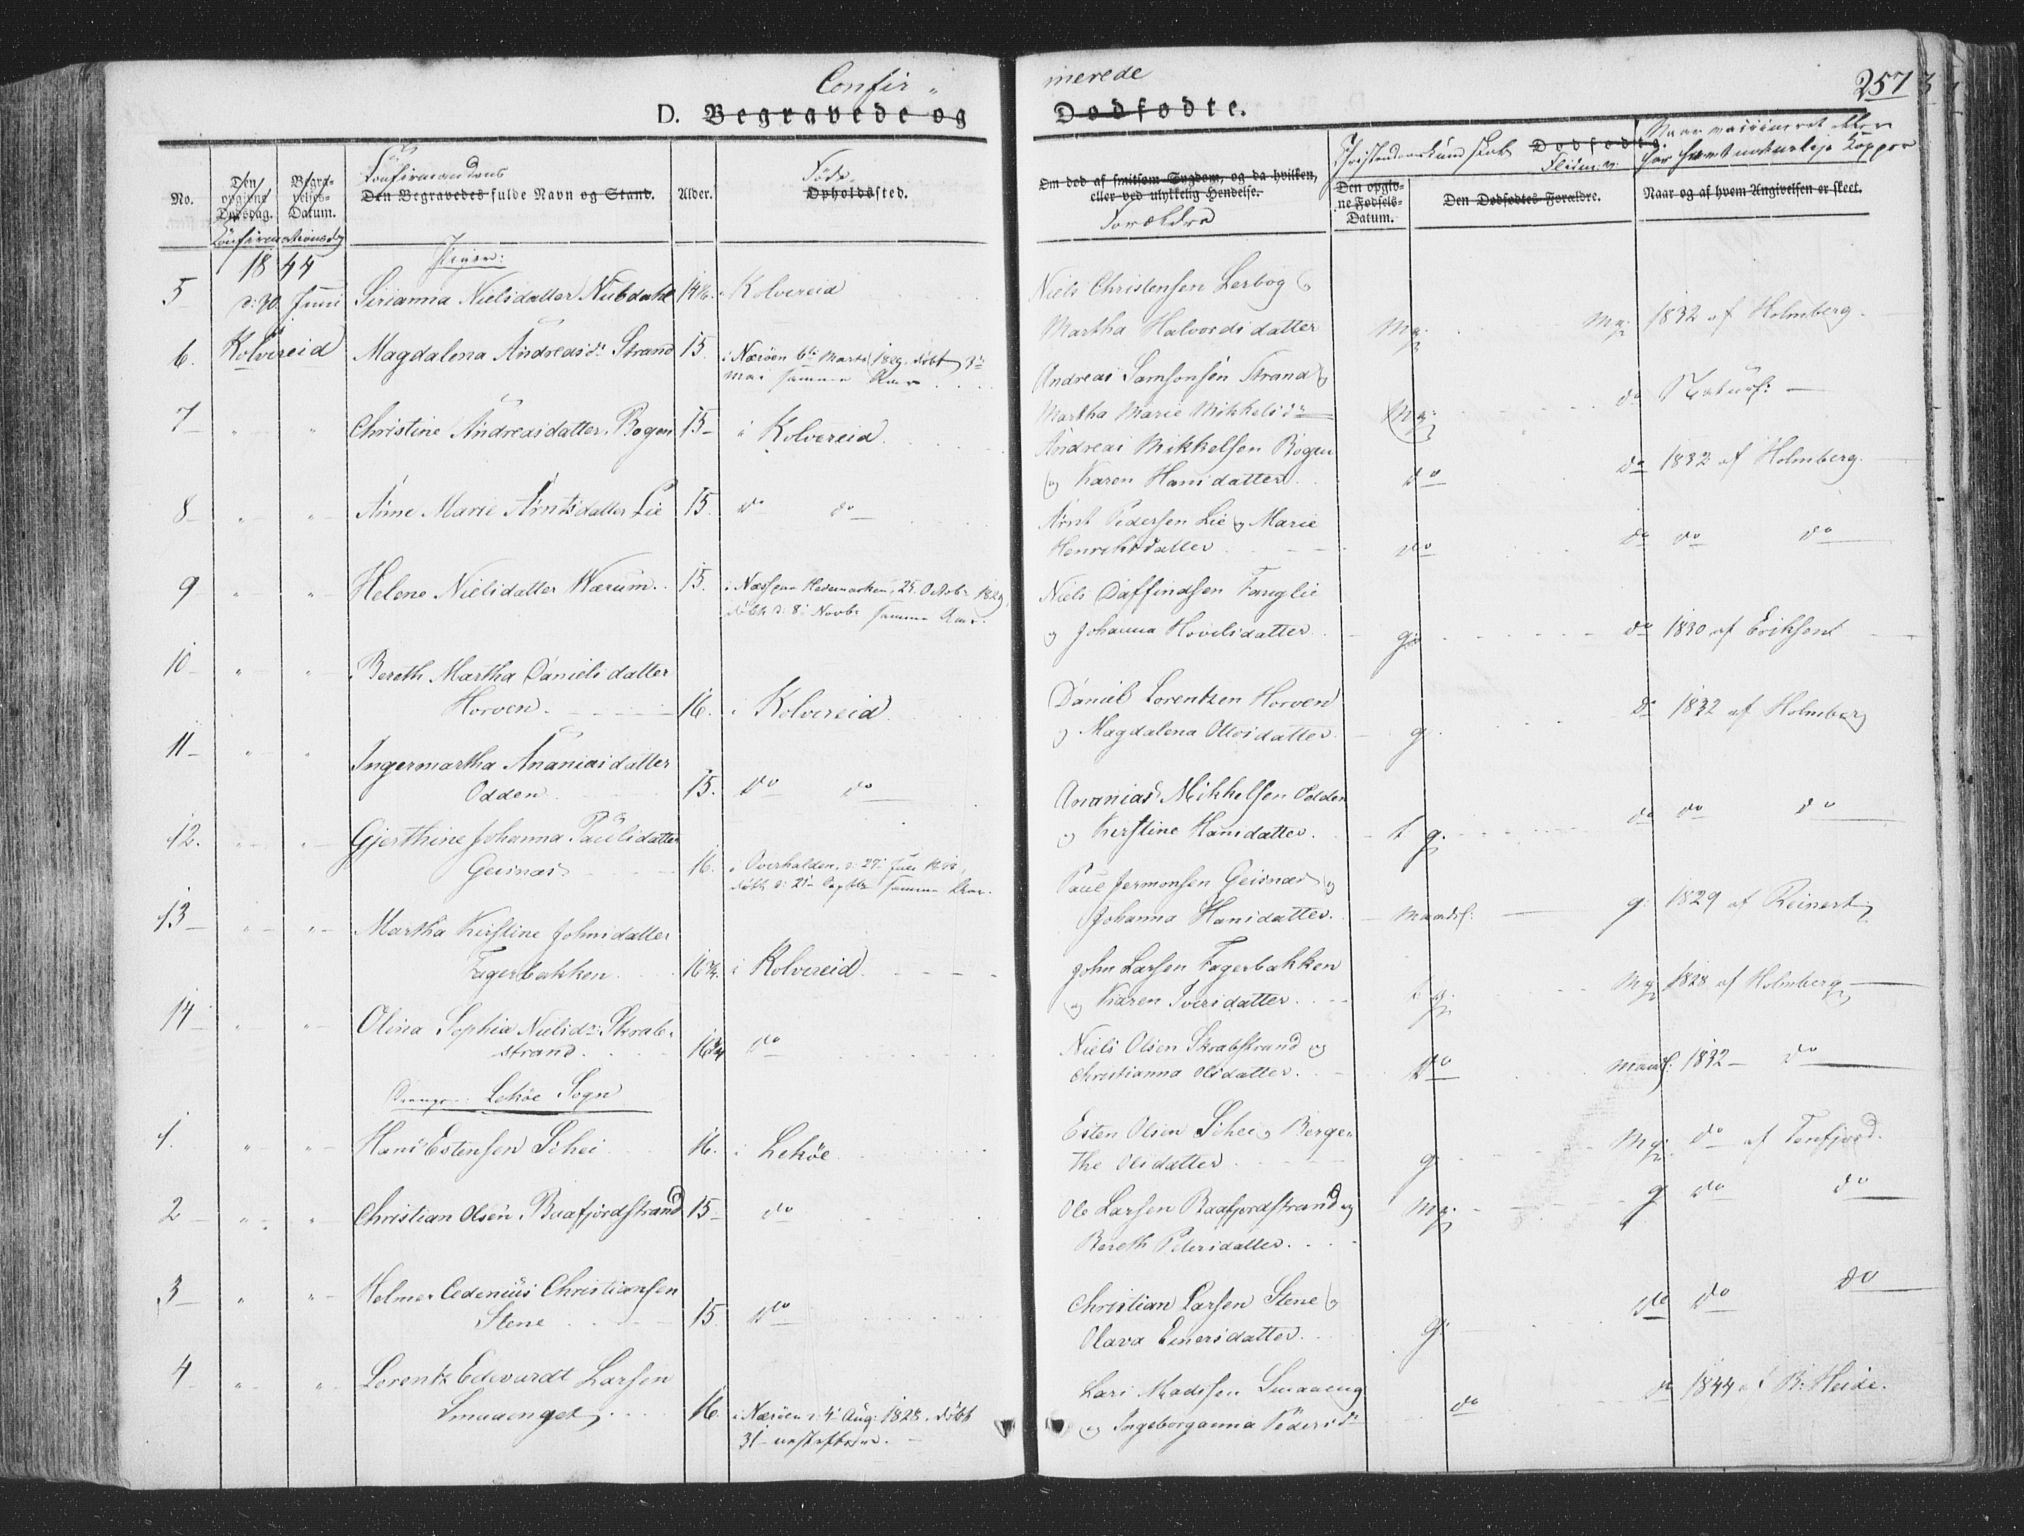 Confir„ merede
257
D. Begravede og Dødfødte.
No.
Den opgivne Dødsdag.
Begravelses-Datum.
Confirmationsdag
Confirmandens
Den Begravedes fulde Navn og Stand.
Alder.
Føde
Opholdssted.
Om død af smitsom Sygdom, og da hvilken, eller ved ulykkelig Hendelse.
Forældre
Christendomskundskab Dødfødte.
Flid
Den opgivne Fødsels-Datum.
Den Dødfødtes Forældre.
Naar vaccineret eller har havt naturlige Kopper
Naar og af hvem Angivelsen er skeet.
1844 Piger:
5 d: 30 Juni Sirianna Nielsdatter Nubdahl 14½. i Kolvereid Niels Christensen Lerbog og
Martha Halvordsdatter Mg: Mg: 1832 af Holmberg.
6. Kolvereid Magdalena Andreasdr Strand 15. i Nærøen 6te Marts 1829. døbt 3de
Mai samme Aar Andreas Samsonsen Strand og
Martha Marie Mikkelsdr Mg: do Naturl: —
7 „ „ Christine Andreasdatter Bogen 15 i Kolvereid. Andreas Mikkelsen Bogen
og Karen Hansdatter. do do 1832 af Holmberg.
8 „ „ Anne Marie Arntsdatter Lie 15. do do Arnt Pedersen Lie og Marie
Henrichsdatter do do do do
9 „ „ Helene Nielsdatter Wærum. 15. i Næs paa Hedemarken, 25. Octobr 1829,
døbt d: 8: Novbr samme Aar. Niels Daffindsen Fanglie
og Johanna Hovelsdatter g: do 1830 af Eriksen
10 „ „ Bereth Martha Danielsdatter
Horven. 16. i Kolvereid Daniel Lorentzen Horven
og Magdalena Ottosdatter g. do 1832 af Holmberg
11 „ „ Ingermartha Ananiasdatter
Odden 15. do do Ananias Mikkelsen Odden
og Kirstine Hansdatter. t g. do do do
12. „ „ Gjerthine Johanna Paulsdatter
Geisnæs 16. i Overhalden, d: 27: Juli
døbt samme Aar. Paul Jermonsen Geisnæs og
Johanna Hansdatter. Maadl: g: 1829 af Reinert
13 „ „ Martha Kirstine Johnsdatter
Fagerbakken 16¾. i Kolvereid. John Larsen Fagerbakken
og Karen Iversdatter t g. Mg. 1828 af Holmberg
14 „ „ Olina Sophia Nielsdr: Skrab-
strand. 16¾ do Niels Olsen Skrabstrand og
Christianna Olsdatter. do Maadl: 1832 do
Drenge: Lekøe Sogn
1. „ „ Hans Estensen Schei 16. i Lekøe Esten Olsen Schei og Berge-
the Olsdatter g Mg: do af Terrfjord.
2 „ „ Christian Olsen Baafjordstrand 15 do Ole Larsen Baafjordstrand og
Bereth Petersdatter. Mg: g do do
3 „ „ Helmer Cedenius Christiansen
Stene 15. do Christian Larsen Stene og
Olava Einersdatter. g: do do do
4 „ „ Lorentz Edevardt Larsen
Smaaenget 16. i Nærøen d: 4: Aug: 1828. døbt
31 næstefter. Lars Madssen Smaaeng
og Ingeborganna Pedersdr do do 1844 af B: Heide.